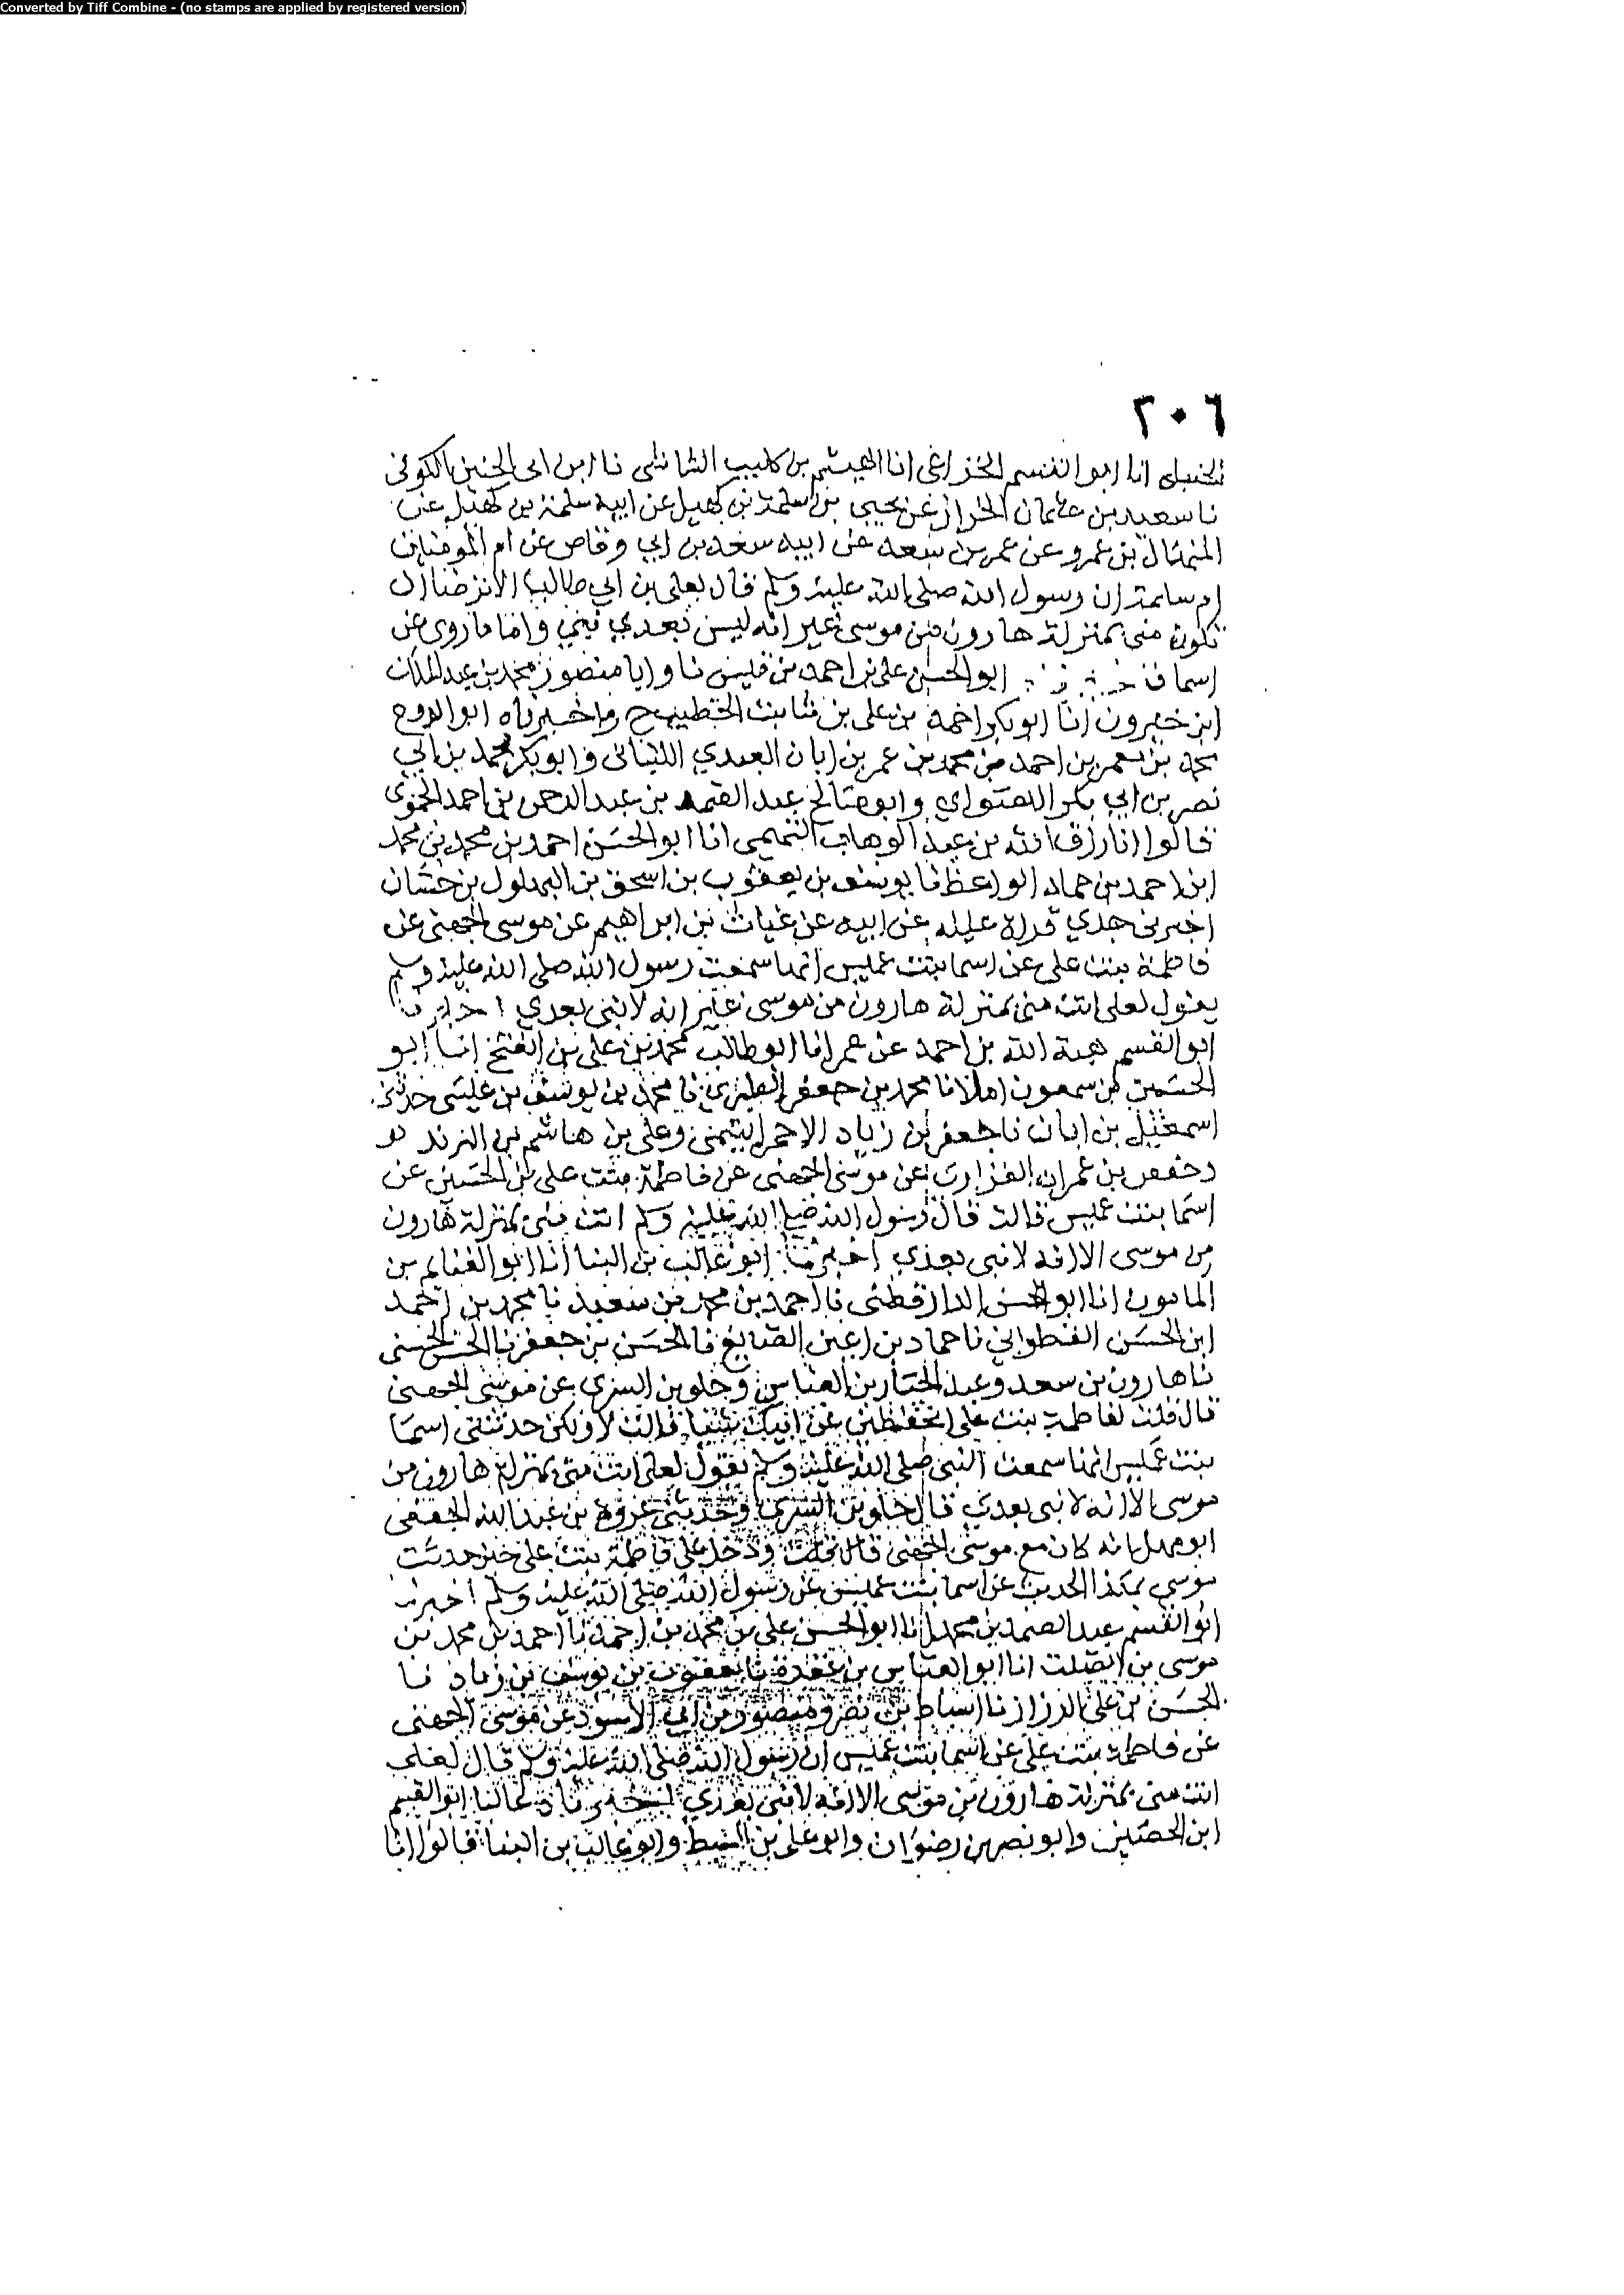 Converted by Tiff Combine - (no stamps are applied by registered version)
٢٠٦
انا ابو القسم الخزاعي انا الهيثم بن كليب الشاشي نا ابن ابي الحنين الكوفي
نا سعيد بن عثمان الخراز عن يحيى بن سلمة بن كهيل عن ابيه سلمة بن كهيل عن
المنهال بن عمرو عن عمر بن سعد عن ابيه سعد بن ابي وقاص عن ام المومنين
ام سلمة ان رسول الله صلى الله عليه وسلم قال لعلي بن ابي طالب الا ترضا ان
تكون مني بمنزلة هارون من موسى غير انه ليس بعدي نبي واما ما روي عن
اسما ف ابو الحسن علي بن احمد بن قيس نا وابا منصور محمد بن عبد الملك
ابن خيرون انا ابو بكر احمد بن علي بن ثابت الخطيب ح واخبرناه ابو الروح
محمد بن معمر بن احمد بن محمد بن عمر بن ابان العبدي اللنباني وابو بكر محمد بن ابي
نصر بن ابي بكر وابو صالح عبد الصمد بن عبد الرحمن بن احمد الحنوي
قالوا انا رزق الله بن عبد الوهاب التميمي انا ابو الحسن احمد بن محمد بن محمد
ابن احمد بن حماد الواعظ نا يوسف بن يعقوب بن اسحق بن البهلول بن حسان
اخبرني جدي قراة عليه عن ابيه عن غياث بن ابراهيم عن موسى الجهني عن
فاطمة بنت علي عن اسما بنت عميس انها سمعت رسول الله صلى الله عليه وسلم
يقول لعلي انت مني بمنزلة هارون من موسى غير انه لا نبي بعدي اخبرنا
ابو القسم هبة الله بن احمد بن عمر انا ابو طالب محمد بن علي بن الفتح انا ابو
الحسين بن سمعون املا نا محمد بن جعفر المطيري نا محمد بن يوسف بن عيسى حدثنا
اسمعيل بن ابان نا جعفر بن زياد الاحمر التيمي وعلي بن هاشم بن البريد و
وحفص بن عمران الفزاري عن موسى الجهني عن فاطمة بنت علي بن الحسين عن
اسما بنت عميس قالت قال رسول الله صلى الله عليه وسلم انت مني بمنزلة هارون
من موسى الا انه لا نبي بعدي اخبرنا ابو غالب بن البنا انا ابو الغنايم بن
المامون انا ابو الحسن الدارقطني نا احمد بن محمد بن سعيد نا محمد بن احمد
ابن الحسن القطواني نا حماد بن اعين الصايغ نا الحسن بن جعفر بن الحسن الحسني
نا هارون بن سعد وعبد الجبار بن العباس وخلو بن السري عن موسى الجهني
قال قلت لفاطمة بنت علي تحفظين عن ابيك شيئا قالت لا ولكن حدثتني اسما
بنت عميس انها سمعت النبي صلى الله عليه وسلم يقول لعلي انت مني بمنزلة هارون من
موسى الا انه لا نبي بعدي قال خلو بن السري وحدثني عروة بن عبد الله الجعفي
ابو مهل انه كان مع موسى الجهني قال قلت ودخل على فاطمة بنت علي حين حدثت
موسى بهذا الحديث عن اسما بنت عميس عن رسول الله صلى الله عليه وسلم اخبرنا
ابو القسم عبد الصمد بن محمد انا ابو الحسن علي بن محمد بن احمد نا احمد بن محمد بن
موسى بن الصلت انا ابو العباس بن عقدة نا يعقوب بن يوسف بن زياد نا
الحسن بن علي الرزاز نا اسباط بن نصر ومنصور بن ابي الاسود عن موسى الجهني
عن فاطمة بنت علي عن اسما بنت عميس ان رسول الله صلى الله عليه وسلم قال لعلي
انت مني بمنزلة هارون من موسى الا انه لا نبي بعدي اخبرناه عاليا ابو القسم
ابن الحصين وابو نصر بن رضوان وابو علي بن السبط وابو غالب بن البنا قالوا انا